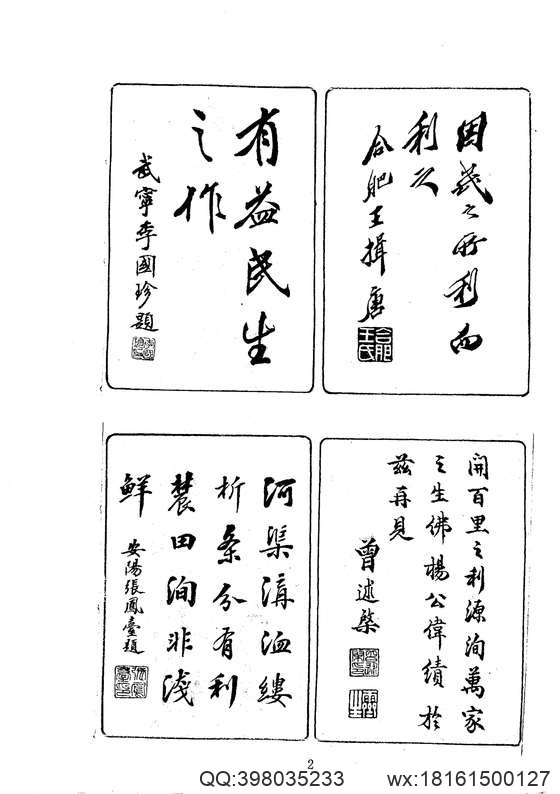 因民之所利而
利之
合肥王揖唐
合肥
王氏
有益民生
之作
武寧李國珍題
開百里之利源洵萬家
之生佛楊公偉績於
茲再見
曾述棨
河渠溝洫縷
析条分有利
農田洵非淺
鮮
安陽張鳳臺題
2
QQ:398035233
wx:18161500127